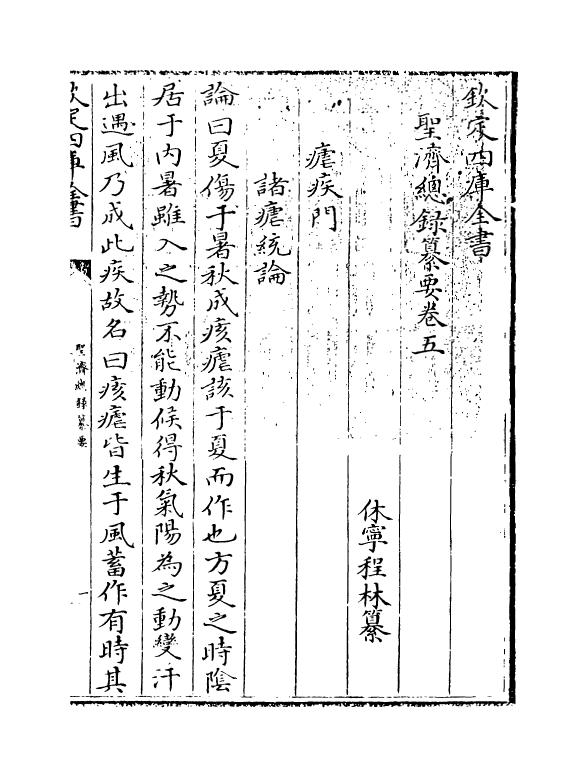 欽定四庫全書
聖濟總錄纂要卷五
休寧程林纂
瘧疾門
諸瘧統論
論曰夏傷于暑秋成痎瘧該于夏而作也方夏之時陰
居于内暑雖入之勢不能動候得秋氣陽為之動變汗
出遇風乃成此疾故名曰痎瘧皆生于風蓄作有時其
欽定四庫全書
聖濟總録纂要
一